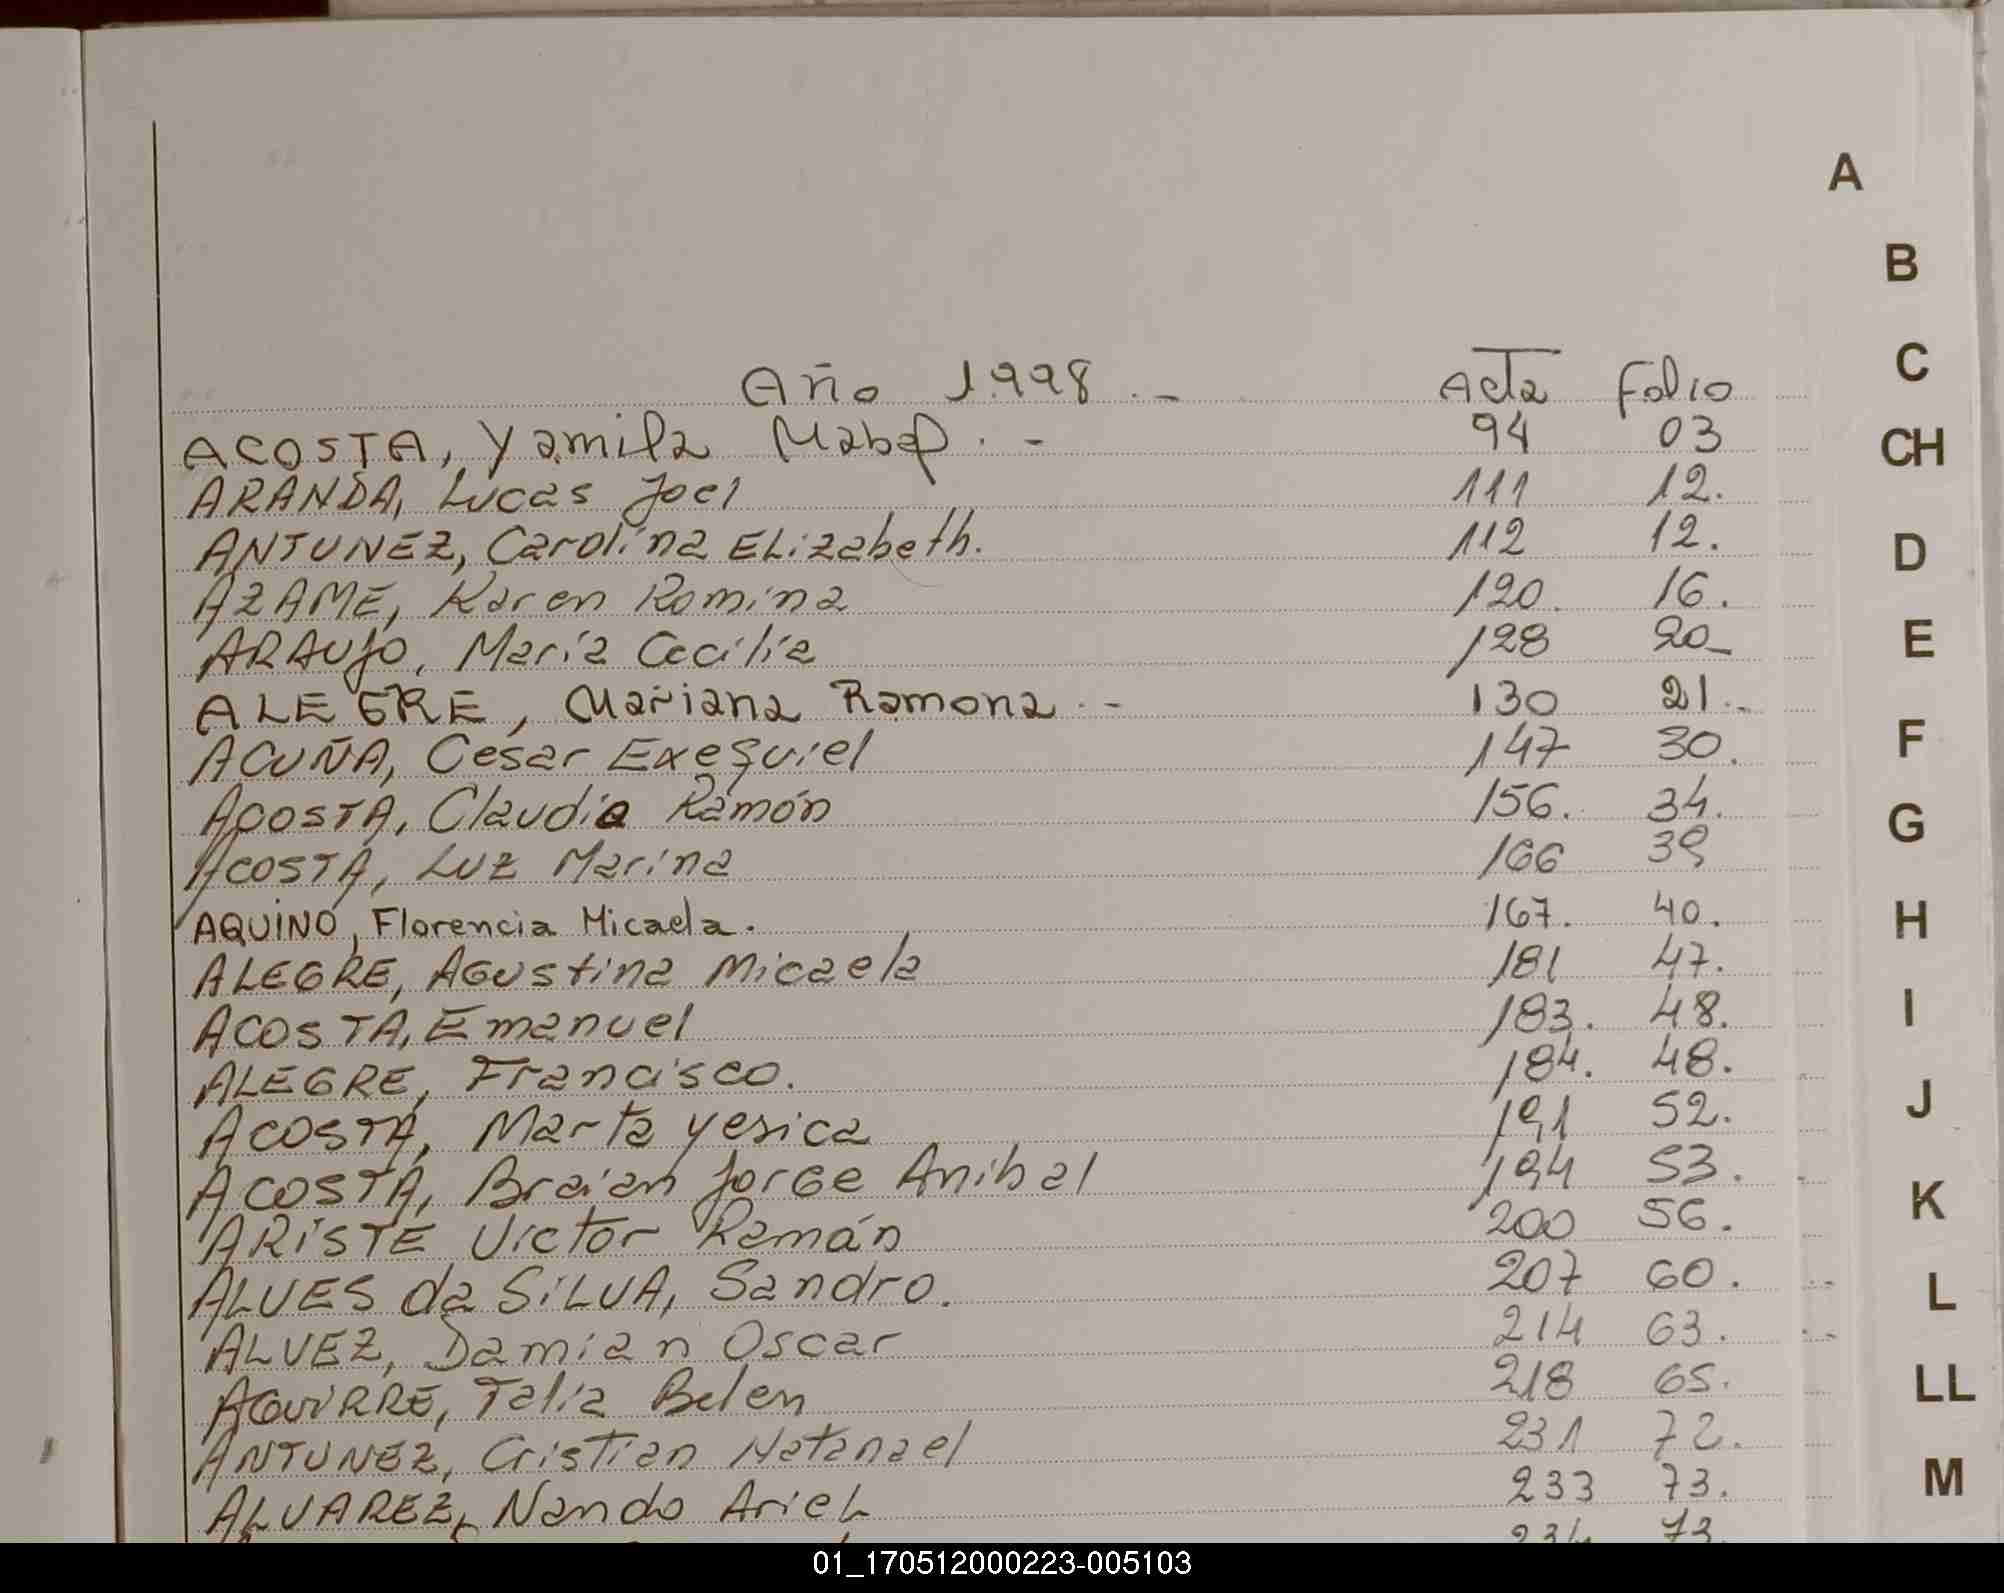 A
B
C
CH
D
E
F
G
H
I
J
K
L
LL
M
Año 1.998.- Acta Folio
ACOSTA, Yamila Mabel.- 94 03
ARANDA, Lucas Joel 111 12.
ANTUNEZ, Carolina ELizabeth. 112 12.
AZAME, Karen Romina 120. 16.
ARAUJO, María Cecilia 128 20-
ALEGRE, Mariana Ramona.- 130 21.-
ACUÑA, Cesar Exequiel 147 30.
ACOSTA, Claudio Ramón 156. 34.
ACOSTA, Luz Marina 166 39
AQUINO, Florencia Micaela. 167. 40.
ALEGRE, AGustina Micaela 181 47.
ACOSTA, Emanuel 183. 48.
ALEGRE, Francisco. 184. 48.
ACOSTA, Marta yesica 191 52.
ACOSTA, Braian Jorge Anibal 194 53.
ARISTE Victor Ramán 200 56.
ALVES da SILVA, Sandro. 207 60.
ALVEZ, Damian Oscar 214 63.
AGUIRRE, Talia Belen 218 65.
ANTUNEZ, Cristian Natanael 231 72.
ALVAREZ, Nando ArieL 233 73.
234 73
01_170512000223-005103